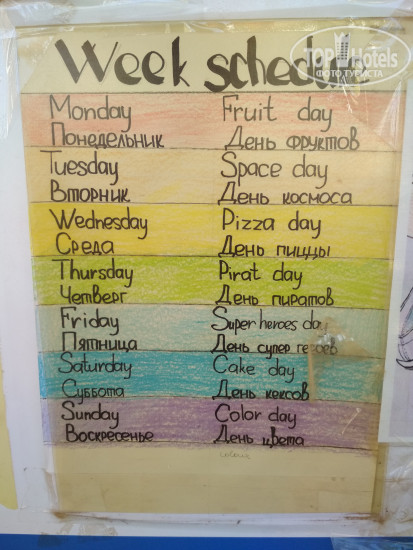 TopHotels
ФОТО ТУРИСТА
Week schedule
Monday Fruit day
Понедельник День фруктов
Tuesday Space day
Вторник День космоса
Wednesday Pizza day
Среда День пиццы
Thursday Pirat day
Четверг День пиратов
Friday Super heroes day
Пятница День супер героев
Saturday Cake day
Суббота День кексов
Sunday Color day
Воскресенье День цвета